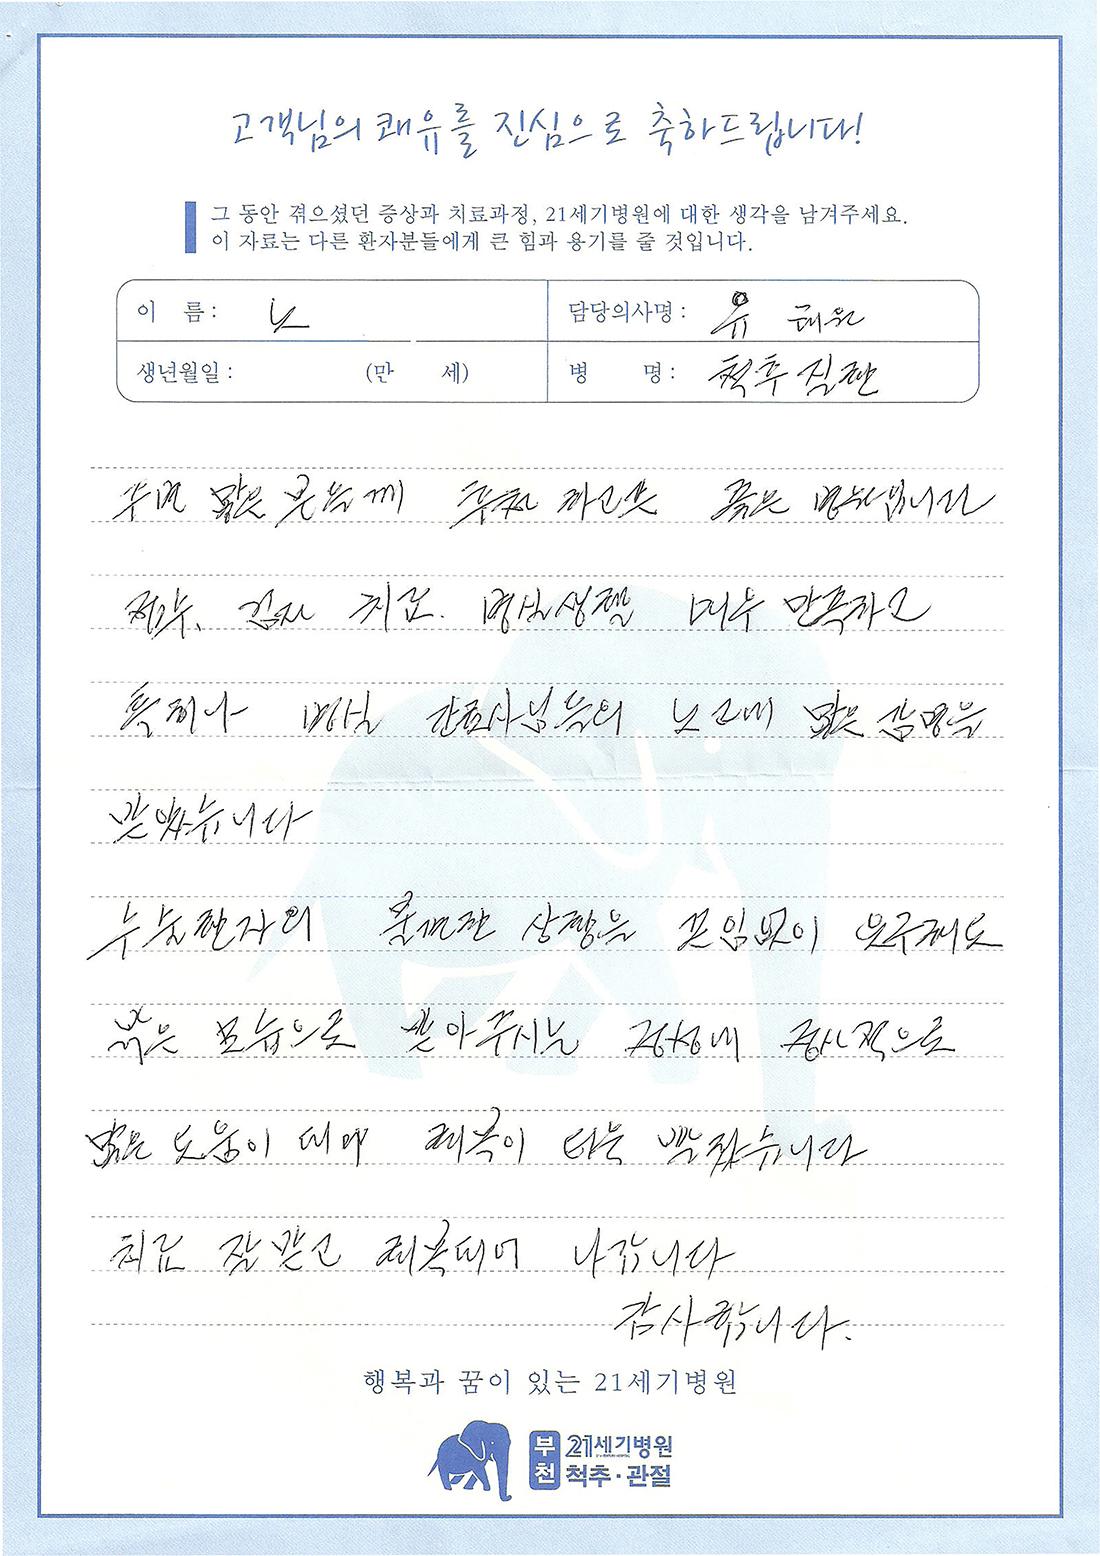 고객님의 쾌유를 진심으로 축하드립니다!
그 동안 겪으셨던 증상과 치료과정, 21세기병원에 대한 생각을 남겨주세요.
이 자료는 다른 환자분들에게 큰 힘과 용기를 줄 것입니다.
이 름 : 노
담당의사명 : 유태원
생년월일 : (만 세)
병 명 : 척추질환
주변 많은 분들께 추천하고픈 좋은 병원입니다
접수, 검사 치료. 병실생활 매우 만족하고
특히나 병실 간호사님들의 노고에 많은 감명을
받았습니다
수술환자의 불편한 상황을 끊임없이 요구해도
밝은 모습으로 받아주시는 정성에 정신적으로
많은 도움이 되어 회복이 더욱 빨랐습니다
치료 잘 받고 회복되어 나갑니다
감사합니다.
행복과 꿈이 있는 21세기병원
부천 21세기병원
척추·관절